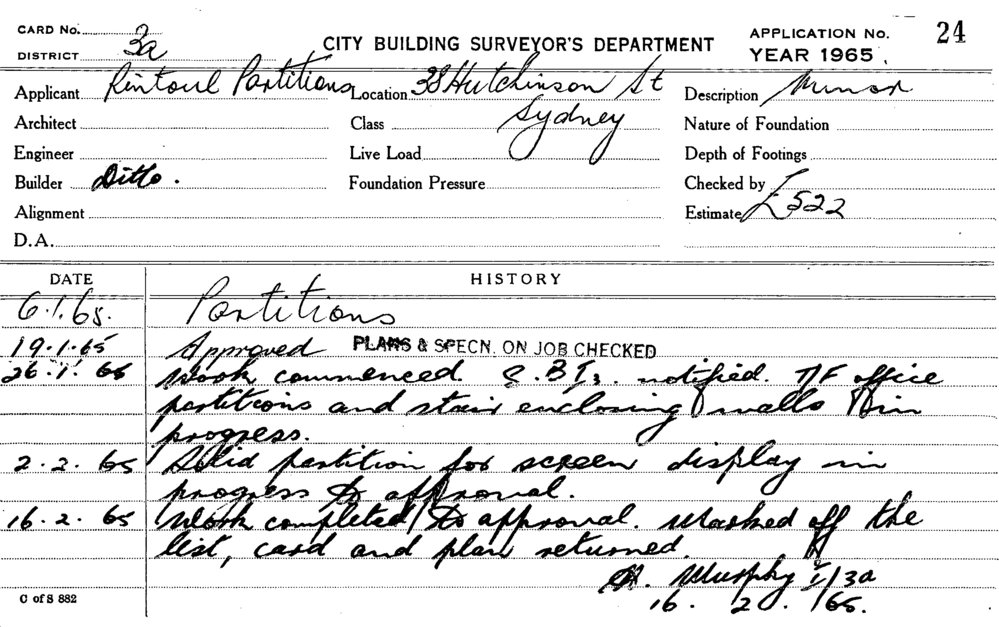 CARD No.
DISTRICT 3a
CITY BUILDING SURVEYOR'S DEPARTMENT
APPLICATION No. 24
YEAR 1965
Applicant Rintoul Partitions Location 38 Hutchinson St Description Minor
Architect Class Sydney Nature of Foundation
Engineer Live Load Depth of Footings
Builder Ditto. Foundation Pressure Checked by
Alignment Estimate £522
D.A.
DATE HISTORY
6.1.65. Partitions
19.1.65 Approved PLANS & SPECN. ON JOB CHECKED
26.1.65 Work commenced. notified. T/F office
partitions and stair enclosing walls in
progress.
2.2.65 Solid partition for screen display in
progress to approval.
16.2.65 Work completed to approval. Marked off the
list, card and plan returned.
Murphy I/3a
16.2.65.
C of S 882